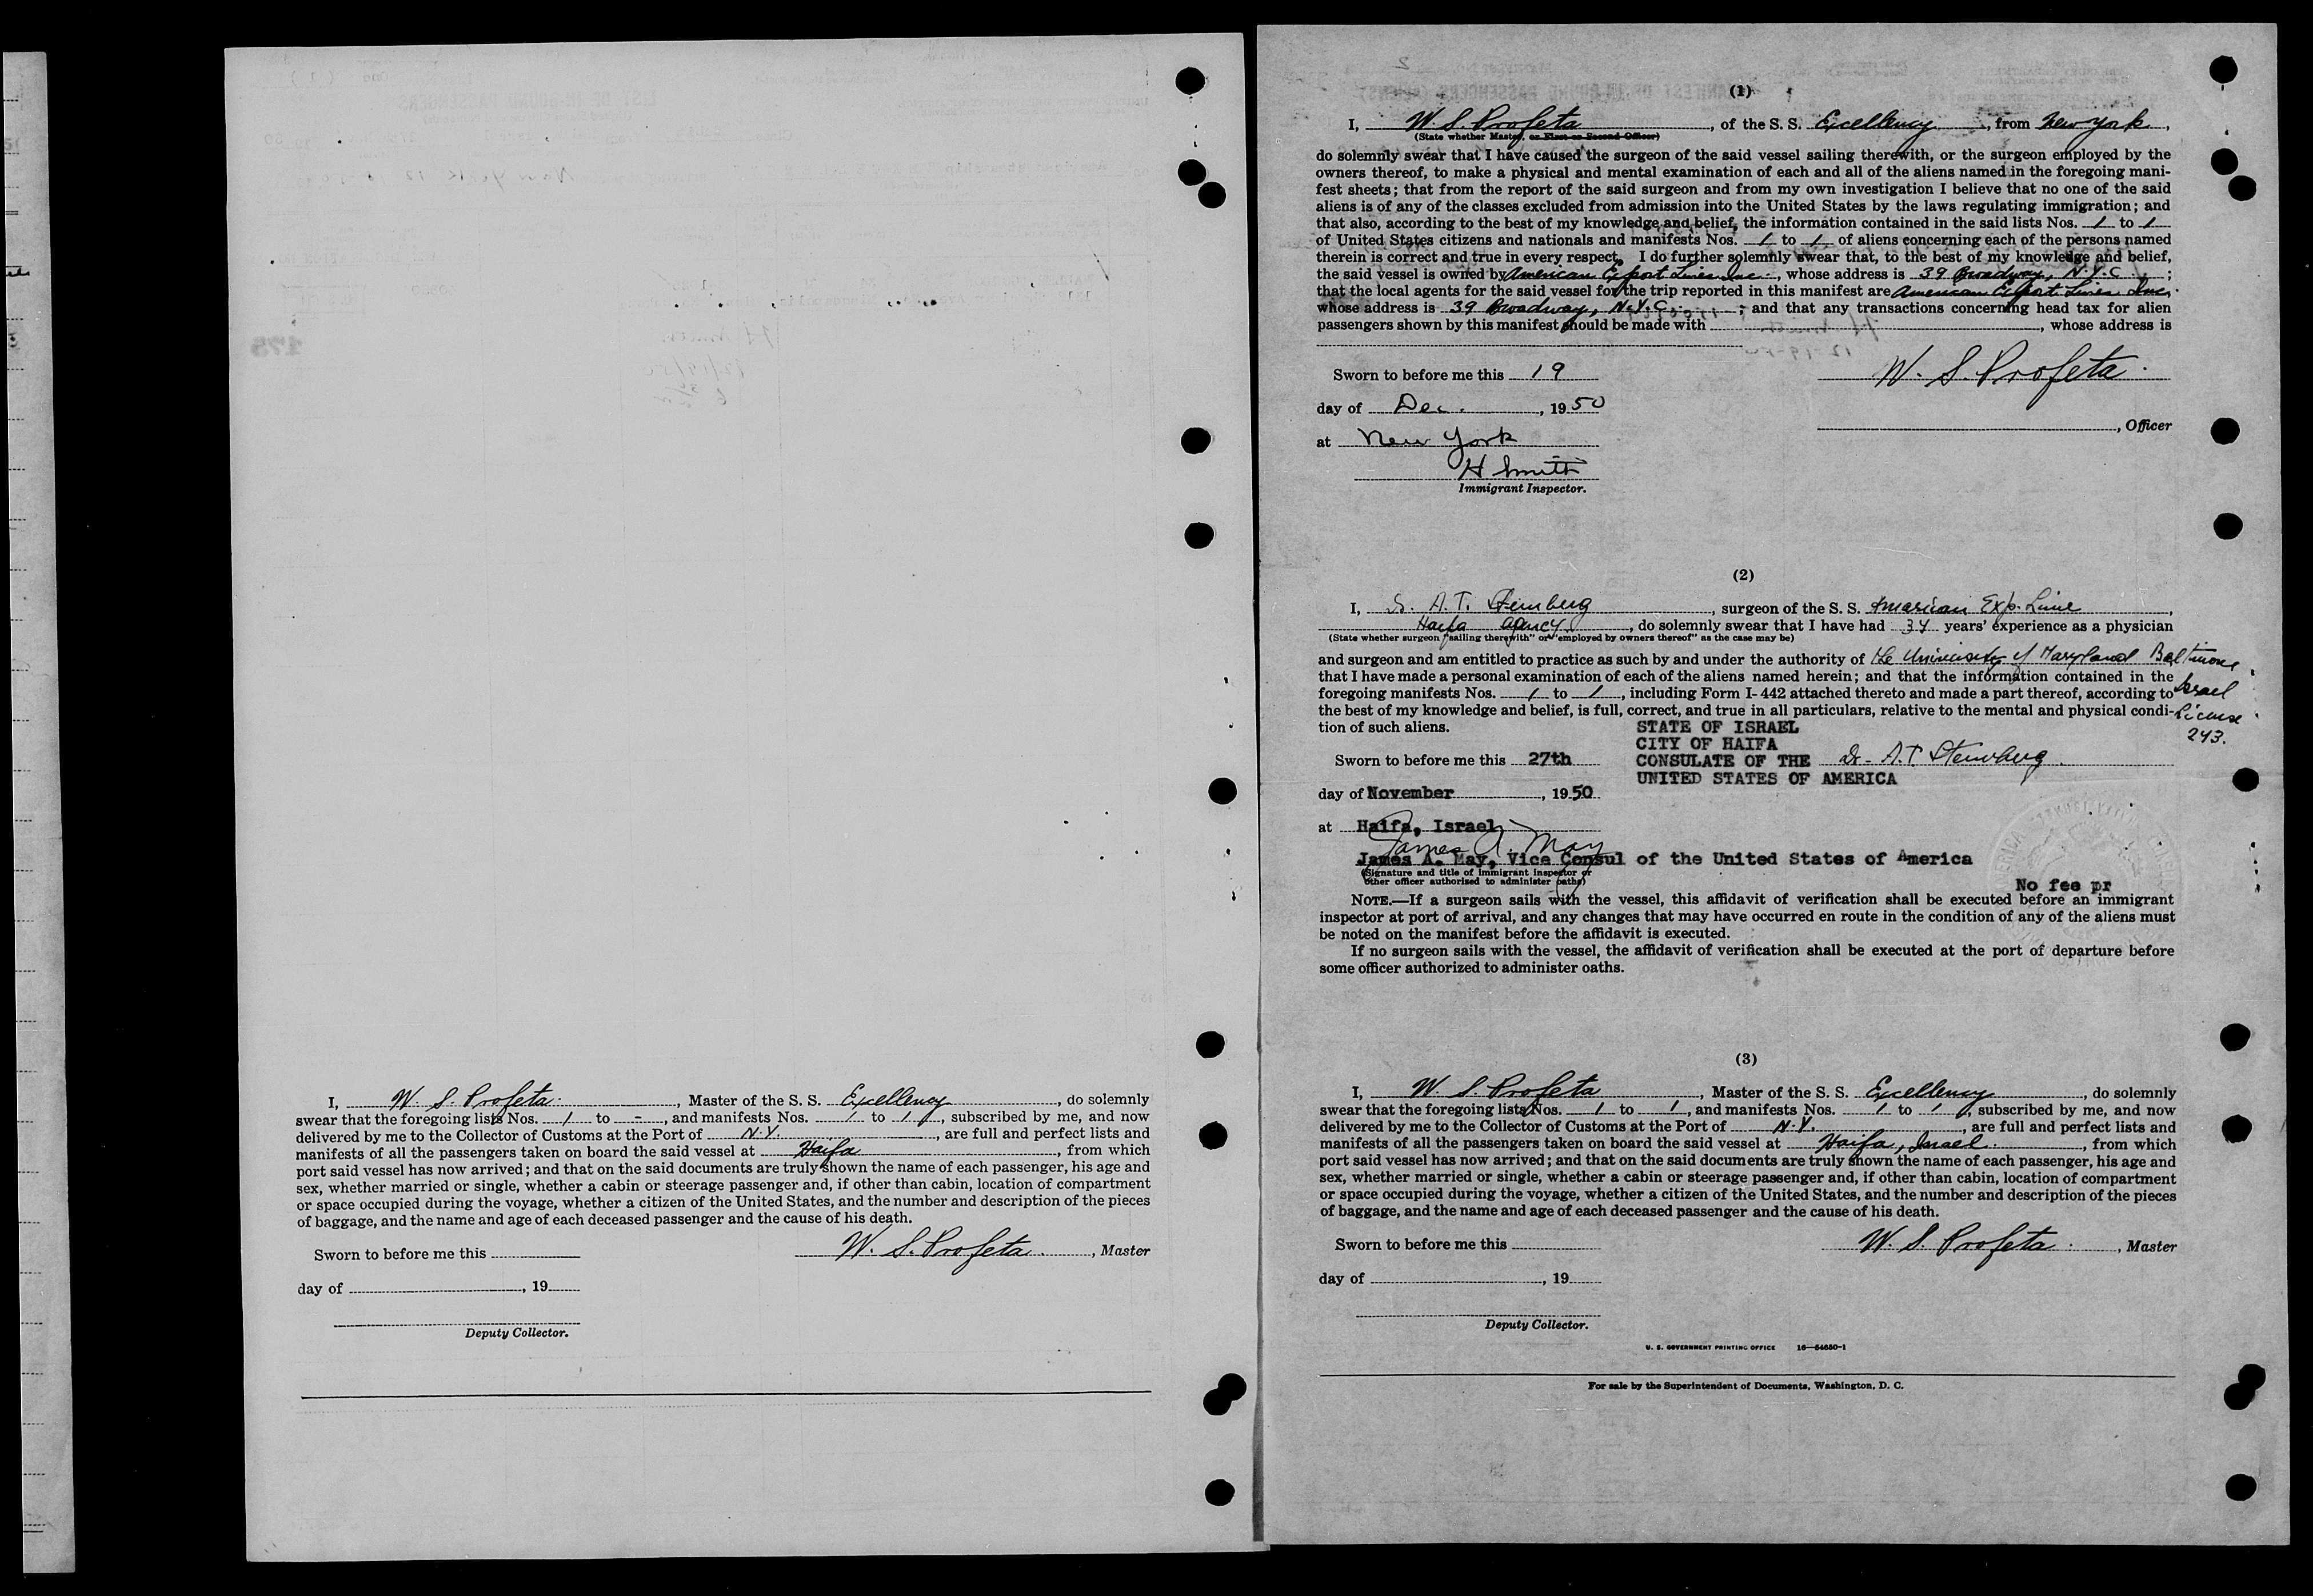 I, W. S. Profeta, Master of the S. S. Excellency, do solemnly
swear that the foregoing lists Nos. 1 to -, and manifests Nos. 1 to 1, subscribed by me, and now
delivered by me to the Collector of Customs at the Port of N.Y., are full and perfect lists and
manifests of all the passengers taken on board the said vessel at Haifa, from which
port said vessel has now arrived; and that on the said documents are truly shown the name of each passenger, his age and
sex, whether married or single, whether a cabin or steerage passenger and, if other than cabin, location of compartment
or space occupied during the voyage, whether a citizen of the United States, and the number and description of the pieces
of baggage, and the name and age of each deceased passenger and the cause of his death.
Sworn to before me this
W. S. Profeta, Master
day of , 19
Deputy Collector.
(1)
I, W. S. Profeta, of the S. S. Excellency, from New York,
(State whether Master, or First or Second Officer)
do solemnly swear that I have caused the surgeon of the said vessel sailing therewith, or the surgeon employed by the
owners thereof, to make a physical and mental examination of each and all of the aliens named in the foregoing mani-
fest sheets; that from the report of the said surgeon and from my own investigation I believe that no one of the said
aliens is of any of the classes excluded from admission into the United States by the laws regulating immigration; and
that also, according to the best of my knowledge and belief, the information contained in the said lists Nos. 1 to 1
of United States citizens and nationals and manifests Nos. 1 to 1 of aliens concerning each of the persons named
therein is correct and true in every respect. I do further solemnly swear that, to the best of my knowledge and belief,
the said vessel is owned by American Export Lines Inc., whose address is 39 Broadway, N.Y.C.;
that the local agents for the said vessel for the trip reported in this manifest are American Export Lines Inc,
whose address is 39 Broadway, N.Y.C.; and that any transactions concerning head tax for alien
passengers shown by this manifest should be made with , whose address is
Sworn to before me this 19
W. S. Profeta
day of Dec., 1950
, Officer
at New York
H Smith
Immigrant Inspector.
(2)
I, Dr. A. T. Steinberg, surgeon of the S. S. American Exp. Line,
Haifa agency, do solemnly swear that I have had 34 years' experience as a physician
(State whether surgeon "sailing therewith" or "employed by owners thereof" as the case may be)
and surgeon and am entitled to practice as such by and under the authority of the University of Maryland Baltimore
that I have made a personal examination of each of the aliens named herein; and that the information contained in the
foregoing manifests Nos. 1 to 1, including Form I-442 attached thereto and made a part thereof, according to Israel
the best of my knowledge and belief, is full, correct, and true in all particulars, relative to the mental and physical condi- License
tion of such aliens. 243.
STATE OF ISRAEL
CITY OF HAIFA
CONSULATE OF THE
UNITED STATES OF AMERICA
Sworn to before me this 27th
Dr. A.T. Steinberg
day of November, 1950
at Haifa, Israel
James A. May
James A. May, Vice Consul of the United States of America
(Signature and title of immigrant inspector or
other officer authorized to administer oaths)
No fee pr
NOTE.—If a surgeon sails with the vessel, this affidavit of verification shall be executed before an immigrant
inspector at port of arrival, and any changes that may have occurred en route in the condition of any of the aliens must
be noted on the manifest before the affidavit is executed.
If no surgeon sails with the vessel, the affidavit of verification shall be executed at the port of departure before
some officer authorized to administer oaths.
(3)
I, W. S. Profeta, Master of the S. S. Excellency, do solemnly
swear that the foregoing lists Nos. 1 to 1, and manifests Nos. 1 to 1, subscribed by me, and now
delivered by me to the Collector of Customs at the Port of N.Y., are full and perfect lists and
manifests of all the passengers taken on board the said vessel at Haifa, Israel, from which
port said vessel has now arrived; and that on the said documents are truly shown the name of each passenger, his age and
sex, whether married or single, whether a cabin or steerage passenger and, if other than cabin, location of compartment
or space occupied during the voyage, whether a citizen of the United States, and the number and description of the pieces
of baggage, and the name and age of each deceased passenger and the cause of his death.
Sworn to before me this
W. S. Profeta, Master
day of , 19
Deputy Collector.
U. S. GOVERNMENT PRINTING OFFICE 16—54650-1
For sale by the Superintendent of Documents, Washington, D. C.